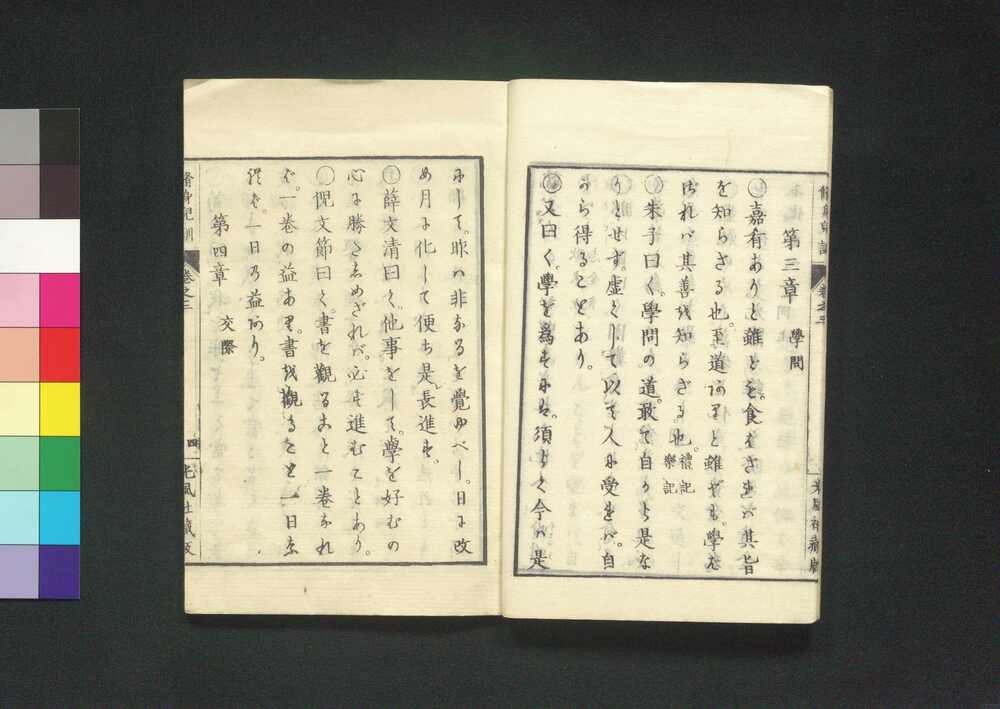 第三章　學問
嘉肴ありと雖ども。食はざれバ其旨
を知らざる也。至道ありと雖ども。學ば
ざれバ其善を知らざる也。禮記
樂記
朱子曰く。學問の道。敢て自から是な
りとせず。虚くして以て人に受れバ。自
から得ることあり。
又曰く。學を為すにハ。須らく今ハ是
にして。昨ハ非なるを覺ゆべし。日に改
め月に化して便ち是。長進す。
薛文清曰く。他事をして。學を好むの
心に勝さしめざれバ。必ず進むことあり。
倪文節曰く。書を觀ること一卷なれ
ば。一卷の益あり。書を觀ること一日なれ
ば。一日の益あり。
第四章　交際
脩身兒訓　卷之三　四　光風社藏版